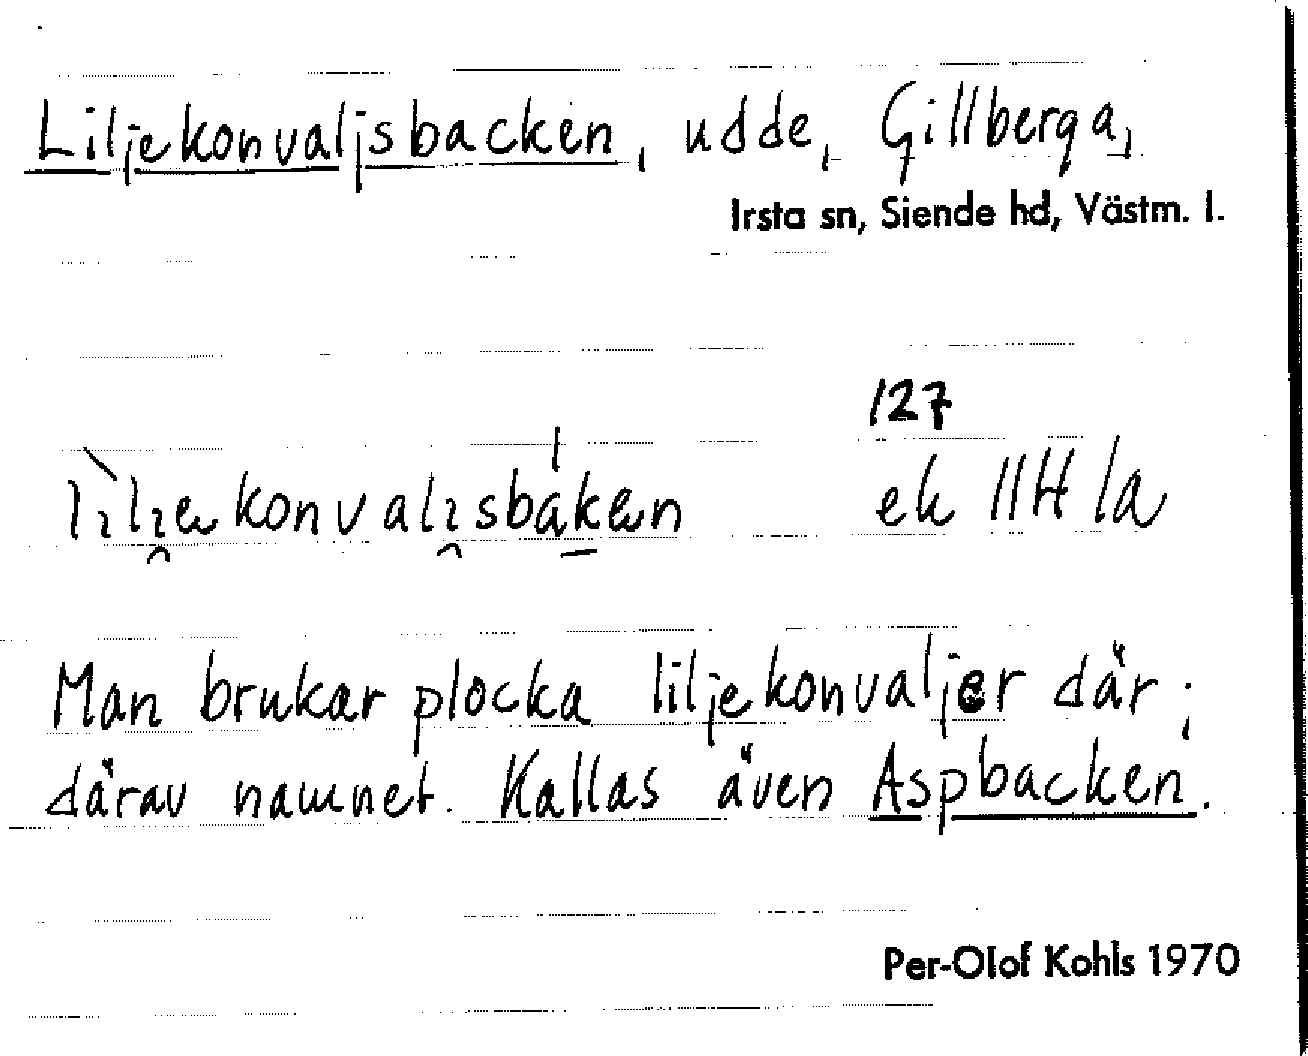 Liljekonvaljsbacken, udde, Gillberga,
Irsta sn, Siende hd, Västm. l.
127
ek IIH la
Man brukar plocka liljekonvaljer där;
därav namnet. Kallas även Aspbacken.
Per-Olof Kohls 1970